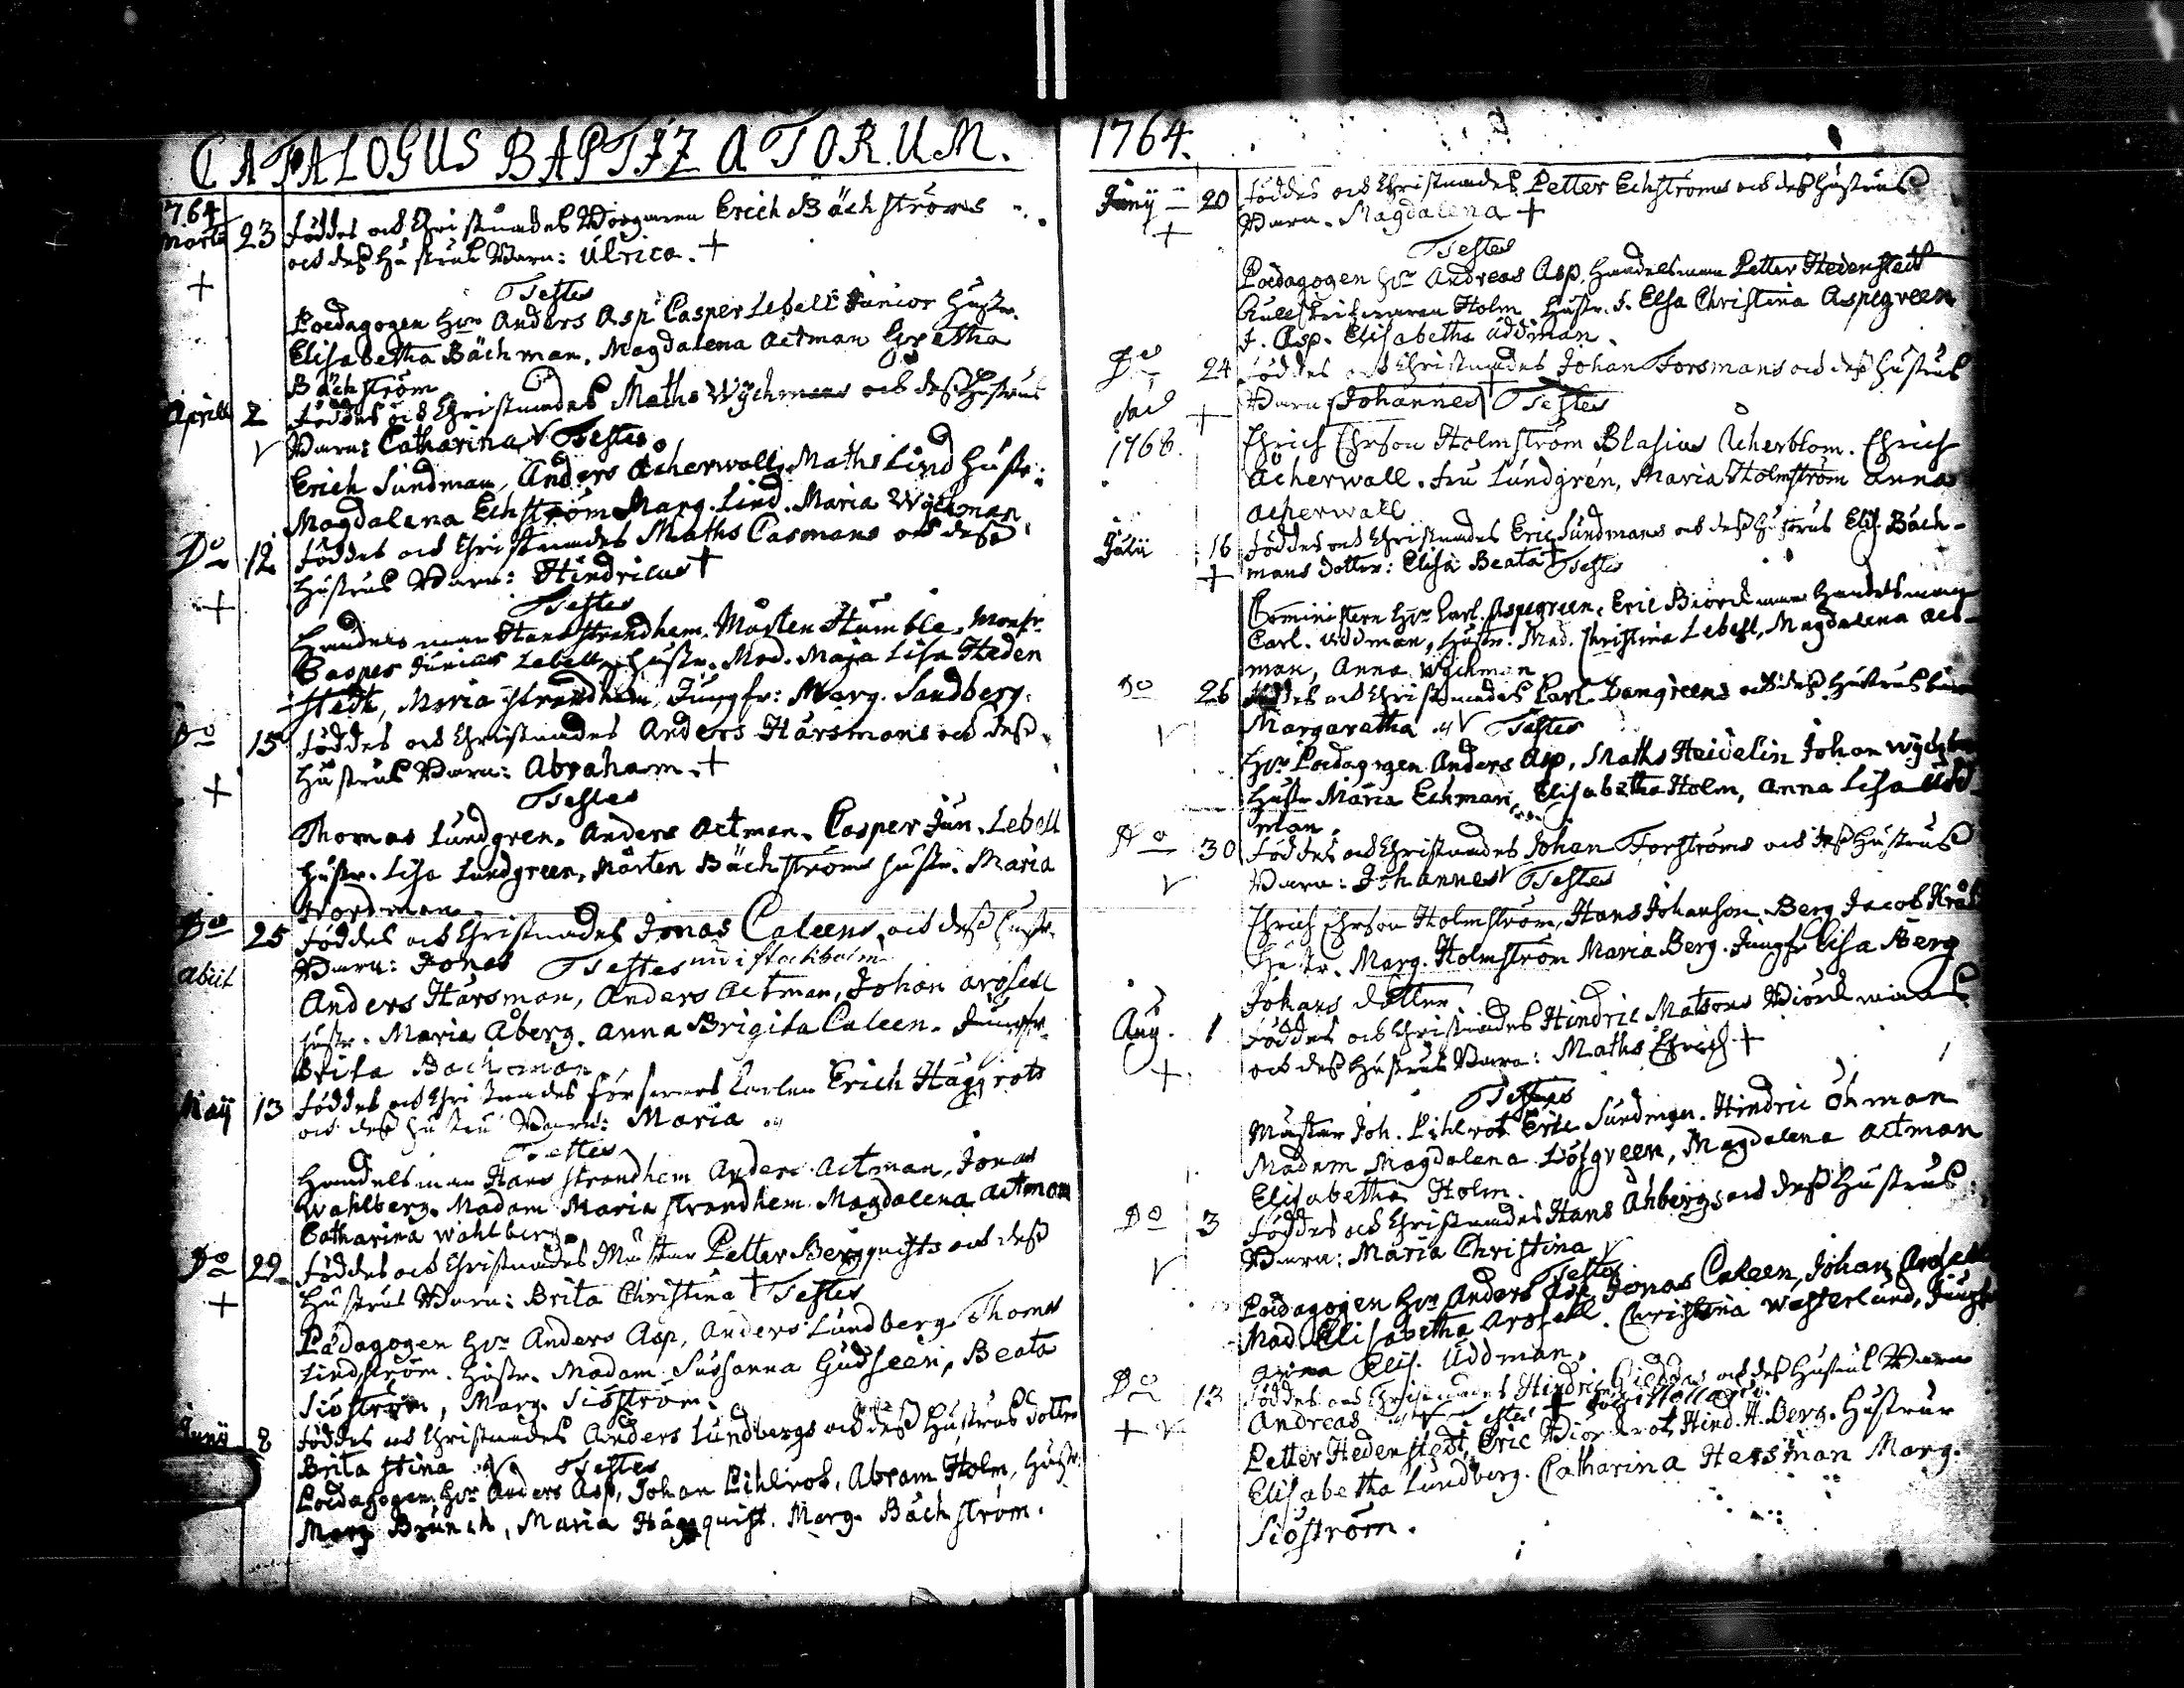 CATALOGUS BAPTIZATORUM.
1764
Martii 23 Föddes och Christnades Borgaren Erich Bächströms
och dess Hustrus Barn: Ulrica. +
+
Testes
Poedagogen Hr Anders Asp. Casper Lebell Junior Hustr.
Elisabetha Bächman. Magdalena Actman Gretha
Bächström
Aprill 2 Föddes och Christnades Maths Wychmans och dess Hustrus
Barn: Catharina V Testes
Erich Sundman, Anders Acherwall, Maths Lind Hustr:
Magdalena Echström Marg. Lind. Maria Wychman
Do 12 Föddes och Christnades Maths Casmans och dess
Hustrus Barn: Hindricus +
+
Testes
Handelsman Hans Strandhem. Mårten Humble. Monsr
Casper Junior Lebell, Hustr. Mad. Maja Lisa Heden
stedt, Maria Strandhem, Jungfr: Marg. Sandberg.
Do 15 Föddes och Christnades Anders Harsmans och dess
Hustrus Barn: Abraham. +
+
Testes
Thomas Lundgren. Anders Actman. Casper Jun. Lebell
Hustr. Lisa Lundgreen, Mårten Bächströms Hustr. Maria
Nordman.
Do 25 Föddes och Christnades Jonas Caleens och dess Hustr.
Barn: Jonas Testes nu i Stockholm
abiit
Anders Harsman, Anders Actman, Johan Arosell
Hustr. Maria Åberg. Anna Brigita Caleen. Jungfr.
Brita Bachman
Maij 13 Föddes och Christnades Erich Häggrots
och dess Hustru Barn: Maria
Testes
Handelsman Hans Strandhem Anders Actman, Jonas
Wahlberg. Madam Maria Strandhem. Magdalena Actman
Catharina Wahlberg.
Do 29 Föddes och Christnades Mustar Petter Bergquists och dess
Hustrus Barn: Brita Christina + Testes
+
Pädagogen Hr Anders Asp, Anders Lundberg Thomas
Lindström. Hustr. Madam Sussanna Gudseen, Beata
Siöström, Marg. Siöström.
Junij 8 Föddes och Christnades Anders Lundbergs och dess Hustrus dotter
Brita Stina V Testes
Poedagogen Hr Anders Asp, Johan Pihlrot, Abram Holm, Hustr.
Marg Brunck, Maria Häggquist. Marg. Bächström.
1764.
Junij 20 Föddes och Christnades Petter Echströms och dess Hustrus
Barn. Magdalena +
+
Testes
Poedagogen Hr Andreas Asp, Handelsman Petter Hedenstedt
Holm Hustr. J. Elsa Christina Aspegreen
J. Asp. Elisabetha Uddman.
Do 24 Föddes och Christnades Johan Forsmans och dess Hustrus
Barn Johannes + Testes
+
1768.
Ehrich Ehrson Holmström Blasius Acherblom. Ehrich
Acherwall. Fru Lundgrén, Maria Holmström Anna
Acherwall
Julii 16 Föddes och Christnades Eric Sundmans och dess Hustrus Elis. Bäch-
mans dotter: Elisa Beata + Testes
+
Comministern Hr Carl. Aspegreen, Eric Biorckman Handelsman
Carl. Uddman, Hustr. Mad. Christina Lebell, Magdalena Act-
man, Anna Wychman
Do 26 Föddes och Christnades Carl Damgreens och dess Hustrus barn
Margaretha V Testes
V
Hr Poedagogen Anders Asp, Maths Heidelin Johan Wychman
Hustr Maria Echman, Elisabetha Holm, Anna Lisa Udd-
man.
Do 30 Föddes och Christnades Johan Forströms och dess Hustrus
Barn: Johannes V Testes
V
Ehrich Ehrson Holmström, Hans Johanson Berg Jacob
Hustr. Marg. Holmström Maria Berg. Jungfr Lisa Berg
Johans dotter
Aug. 1 Föddes och Christnades Hindric Matsons
och dess Hustrus Barn: Maths Ehrich +
+
Testes
Mustar Joh. Pihlrot Eric Sundman. Hindric Öhman
Madam Magdalena Löfgreen, Magdalena Actman
Elisabetha Holm.
Do 3 Föddes och Christnades Hans Åhbergs och dess Hustrus
Barn: Maria Christina V
V
Testes
Poedagogen Hr Anders Asp, Jonas Caleen, Johan Arosell
Mad Elisabetha Arosell. Christina Westerlund, Jungfr
Anna Elis. Uddman.
Do 13 Föddes och Christnades Hindric Gieddas och dess Hustrus Barn
Andreas V Testes +
+ V
Petter Hedenstedt, Eric Biorkrot, Hind. H. Berg. Hustrur
Elisabetha Lundberg. Catharina Hersman Marg.
Siöström.